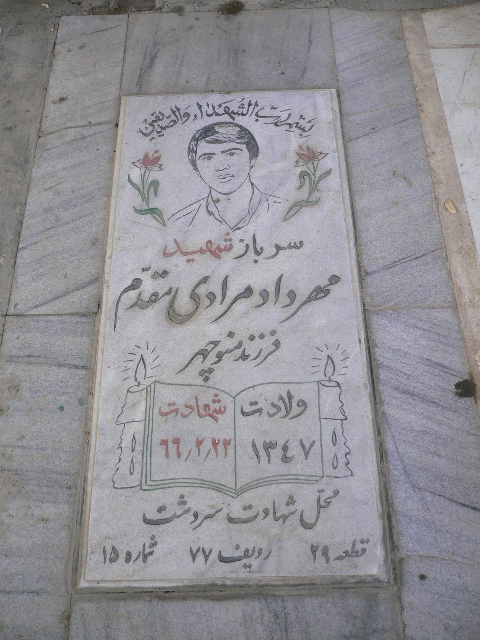 بسم رب الشهداء والصدیقین
سرباز شهید
مهرداد مرادی مقدّم
فرزند منوچهر
ولادت شهادت
۱۳۴۷ ۶۶٫۲٫۲۲
محلّ شهادت سردشت
قطعه ۲۹ ردیف ۷۷ شماره ۱۵